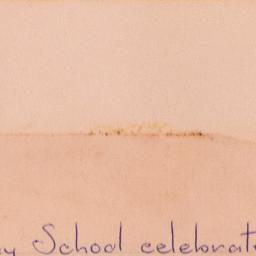 y School celebrat